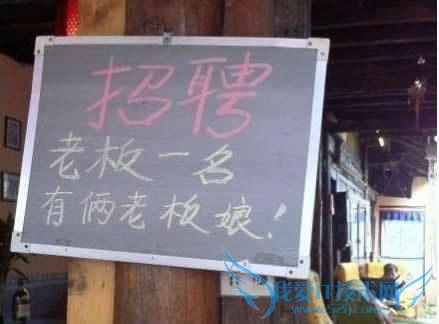 招聘
老板一名
有俩老板娘！
我爱IT技术网
www.52ij.com